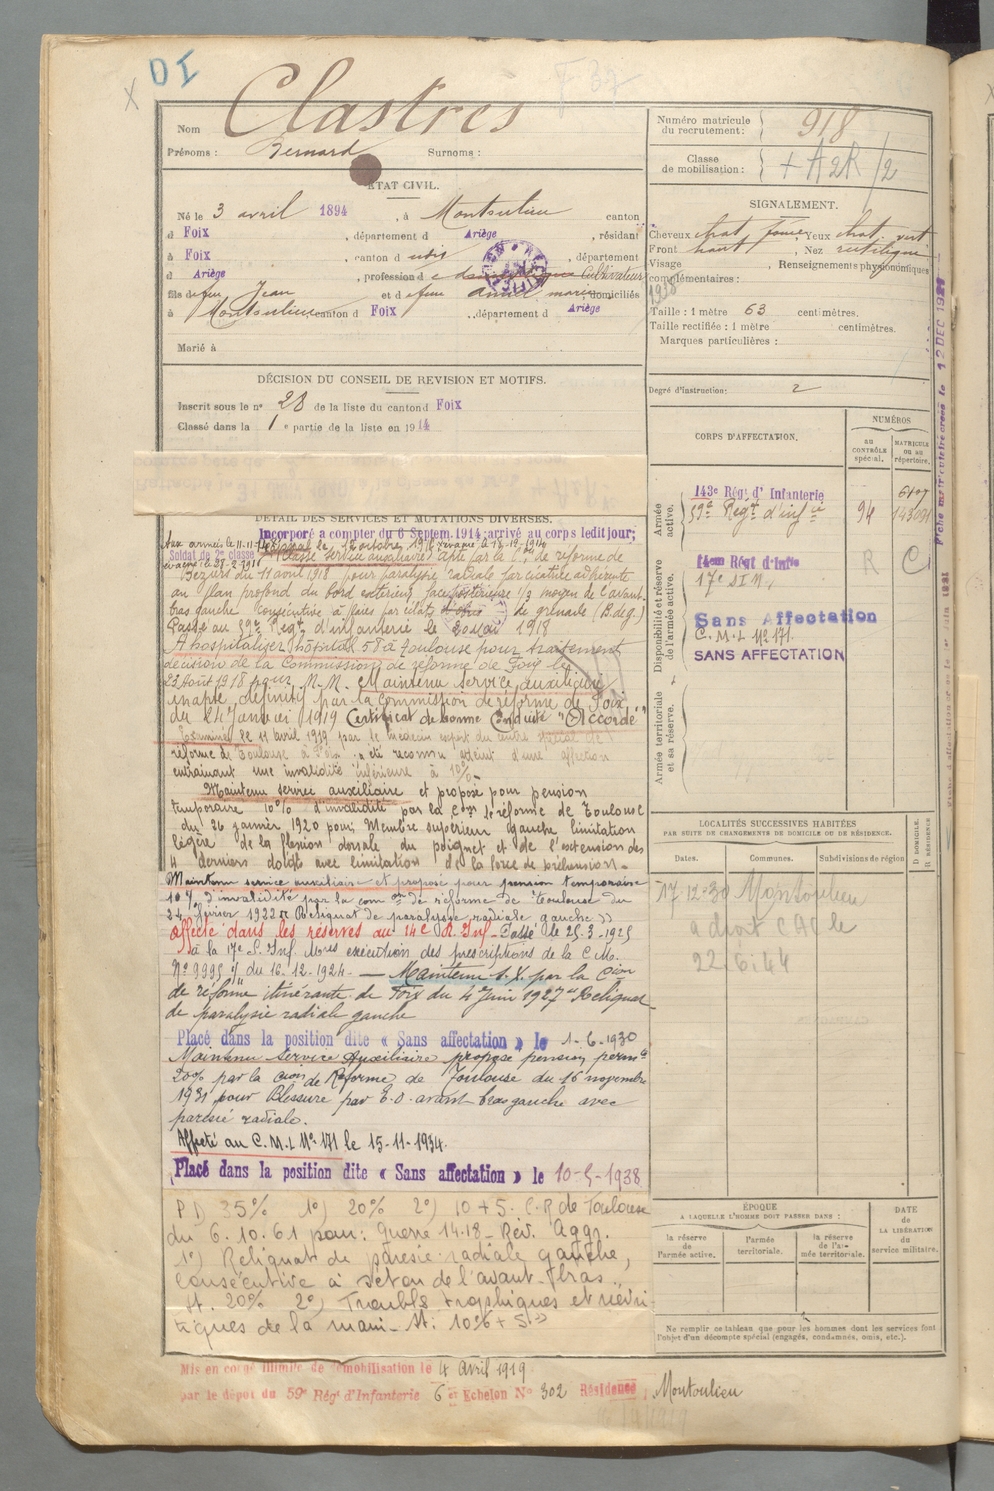 DI
Nom Clastres
Prénoms : Bernard Surnoms :
Numéro matricule du recrutement : 918
Classe de mobilisation : + A2R/2
ÉTAT CIVIL.
Né le 3 avril 1894, à Montoulieu canton
d Foix, département d Ariège, résidant
à Foix, canton d département
d Ariège, profession d Cultivateur
fils de feu Jean et d domiciliés
à Montoulieu canton d Foix, département d Ariège
Marié à
SIGNALEMENT.
Cheveux chat. foncé, Yeux chat. vert
Front haut, Nez rectiligne
Visage Renseignements physionomiques
complémentaires :
Taille : 1 mètre 63 centimètres.
Taille rectifiée : 1 mètre centimètres.
Marques particulières :
Degré d'instruction : 2
DÉCISION DU CONSEIL DE REVISION ET MOTIFS.
Inscrit sous le n° 28 de la liste du canton d Foix
Classé dans la 1e partie de la liste en 1914
CORPS D'AFFECTATION.
NUMÉROS
au CONTRÔLE spécial.
MATRICULE ou au répertoire.
Armée active.
143e Régt d'Infanterie
59e Régt d'infie 94
Disponibilité et réserve de l'armée active.
14eme Régt d'Infie R C
17e S I M
Sans Affectation
C.M.I. N° 171.
SANS AFFECTATION
Armée territoriale et sa réserve.
DÉTAIL DES SERVICES ET MUTATIONS DIVERSES.
Incorporé à compter du 6 Septem. 1914; arrivé au corps ledit jour;
Soldat de 2e classe
Classé service auxiliaire Apte par la de réforme de
Béziers du 11 avril 1918 pour paralysie radiale par cicatrice adhérente
au plan profond du bord extérieur face postérieure 1/3 moyen de l'avant
bras gauche consécutive à plaies par éclats de grenade (B. de g.)
Passé au 59e Régt d'infanterie le 20 Mai 1918
A hospitaliser hôpital 58 à Toulouse pour traitement
décision de la Commission de réforme de Foix le
23 Août 1918 pour N.M. Maintenu service auxiliaire
inapte définitif par la Commission de réforme de Foix
du 24 Janvier 1919 Certificat de bonne Conduite "Accordé"
Examiné le 11 avril 1919 par le médecin expert du centre
réforme de Toulouse à Foix a été reconnu atteint d'une affection
entraînant une invalidité inférieure à 10%.
Maintenu service auxiliaire et proposé pour pension
temporaire 10% d'invalidité par la Com de réforme de Toulouse
du 26 janvier 1920 pour Membre supérieur gauche limitation
légère de la flexion dorsale du poignet et de l'extension des
4 derniers doigts avec limitation de la force de préhension.
Maintenu service auxiliaire et proposé pour pension temporaire
10% d'invalidité par la com on de réforme de Toulouse du
24 février 1922 Reliquat de paralysie radiale gauche »
Affecté dans les réserves au 14e R. Inf. Passé le 25.3.1925
à la 17e S. Inf. Mres exécution des prescriptions de la C.M.
N° 9995 du 16.12.1924. — Maintenu S.X. par la Cion
de réforme itinérante de Foix du 4 Juin 1927 "Reliquat
de paralysie radiale gauche
Placé dans la position dite « Sans affectation » le 1-6-1930
Maintenu Service Auxiliaire propose pension permte
20% par la Cion de Réforme de Toulouse du 16 novembre
1931 pour Blessure par E.O. avant-bras gauche avec
parésie radiale.
Affecté au C.M.I. N° 171 le 15-11-1934.
Placé dans la position dite « Sans affectation » le 10-5-1938
P D 35% 1°) 20% 2°) 10+5. C.R de Toulouse
du 6.10.61 pour : Guerre 14.18 - Rév. Aggr.
1°) Reliquat de parésie radiale gauche,
consécutive à séton de l'avant-bras.
St. 20% 2°) Troubles trophiques et névri
tiques de la main - St : 10% + 5 »
LOCALITÉS SUCCESSIVES HABITÉES
PAR SUITE DE CHANGEMENTS DE DOMICILE OU DE RÉSIDENCE.
Dates. Communes. Subdivisions de région
D DOMICILE.
R RÉSIDENCE
17-12-30 Montoulieu
a droit CAC le
22.6.44
ÉPOQUE
A LAQUELLE L'HOMME DOIT PASSER DANS :
la réserve de l'armée active.
l'armée territoriale.
la réserve de l'armée territoriale.
DATE DE LA LIBÉRATION du service militaire.
Ne remplir ce tableau que pour les hommes dont les services font
l'objet d'un décompte spécial (engagés, condamnés, omis, etc.).
Mis en congé illimité de démobilisation le 4 Avril 1919
par le dépôt du 59e Régt d'Infanterie 6 er Echelon N° 302 Résidence : Montoulieu